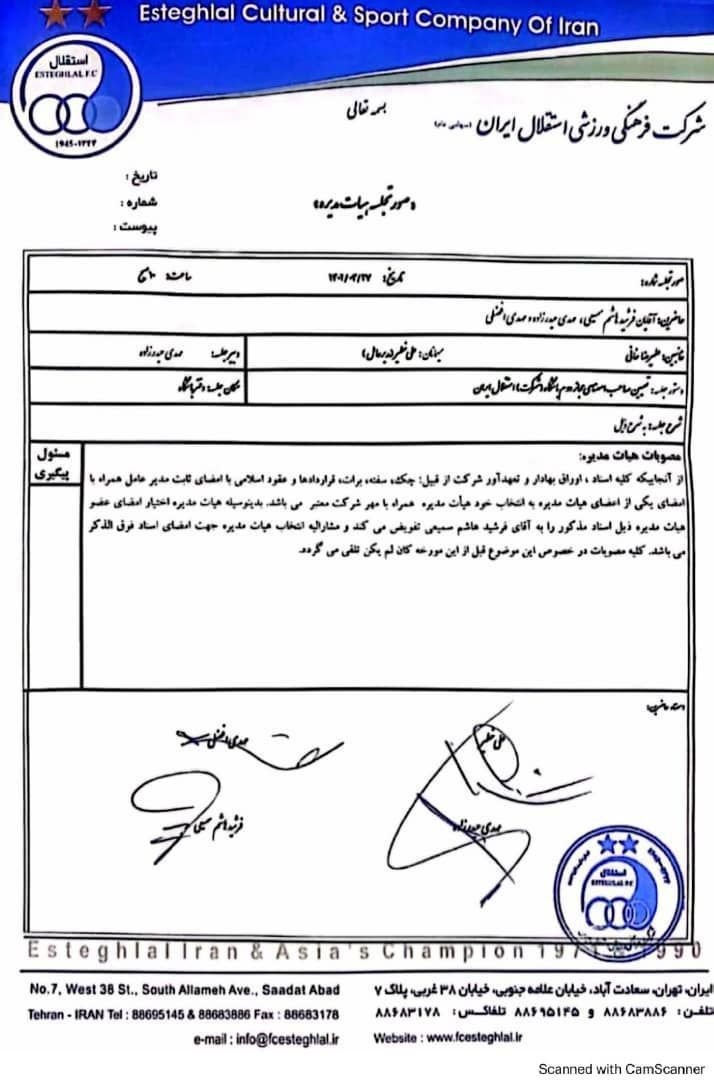 Esteghlal Cultural & Sport Company Of Iran
استقلال
ESTEGHLAL F.C
۱۹۴۵-۱۳۲۴
بسمه تعالی
شرکت فرهنگی ورزشی استقلال ایران (سهامی عام)
تاریخ :
شماره :
پیوست :
«صورتجلسه هیات مدیره»
صورتجلسه شماره: تاریخ: ۱۴۰۱/۰۲/۲۷ ساعت: ۱۰ صبح
حاضرین: آقایان فرشید هاشم سمیعی، مهدی حیدرزاده و مهدی افضلی
غایبین: علیرضا خانی میهمان: علی خطیر (مدیرعامل) دبیر جلسه: مهدی حیدرزاده
دستور جلسه: تعیین صاحب امضای مجاز دوم باشگاه (شرکت) استقلال ایران مکان جلسه: دفتر باشگاه
شرح جلسه: به شرح ذیل
مصوبات هیات مدیره:
مسئول پیگیری
از آنجاییکه کلیه اسناد ، اوراق بهادار و تعهدآور شرکت از قبیل: چک، سفته، برات، قراردادها و عقود اسلامی با امضای ثابت مدیر عامل همراه با
امضای یکی از اعضای هیات مدیره به انتخاب خود هیأت مدیره همراه با مهر شرکت معتبر می باشد. بدینوسیله هیات مدیره اختیار امضای عضو
هیات مدیره ذیل اسناد مذکور را به آقای فرشید هاشم سمیعی تفویض می کند و مشارالیه انتخاب هیات مدیره جهت امضای اسناد فوق الذکر
می باشد. کلیه مصوبات در خصوص این موضوع قبل از این مورخه کان لم یکن تلقی می گردد.
علی خطیر
مهدی افضلی
مهدی حیدرزاده
فرشید هاشم سمیعی
استقلال
ESTEGHLAL F.C
Esteghlal Iran & Asia's Champion 1971 & 1990
No.7, West 38 St., South Allameh Ave., Saadat Abad
Tehran - IRAN Tel : 88695145 & 88683886 Fax : 88683178
e-mail : info@fcesteghlal.ir
ایران، تهران، سعادت آباد، خیابان علامه جنوبی، خیابان ۳۸ غربی، پلاک ۷
تلفن: ۸۸۶۸۳۸۸۶ و ۸۸۶۹۵۱۴۵ تلفاکس: ۸۸۶۸۳۱۷۸
Website : www.fcesteghlal.ir
Scanned with CamScanner